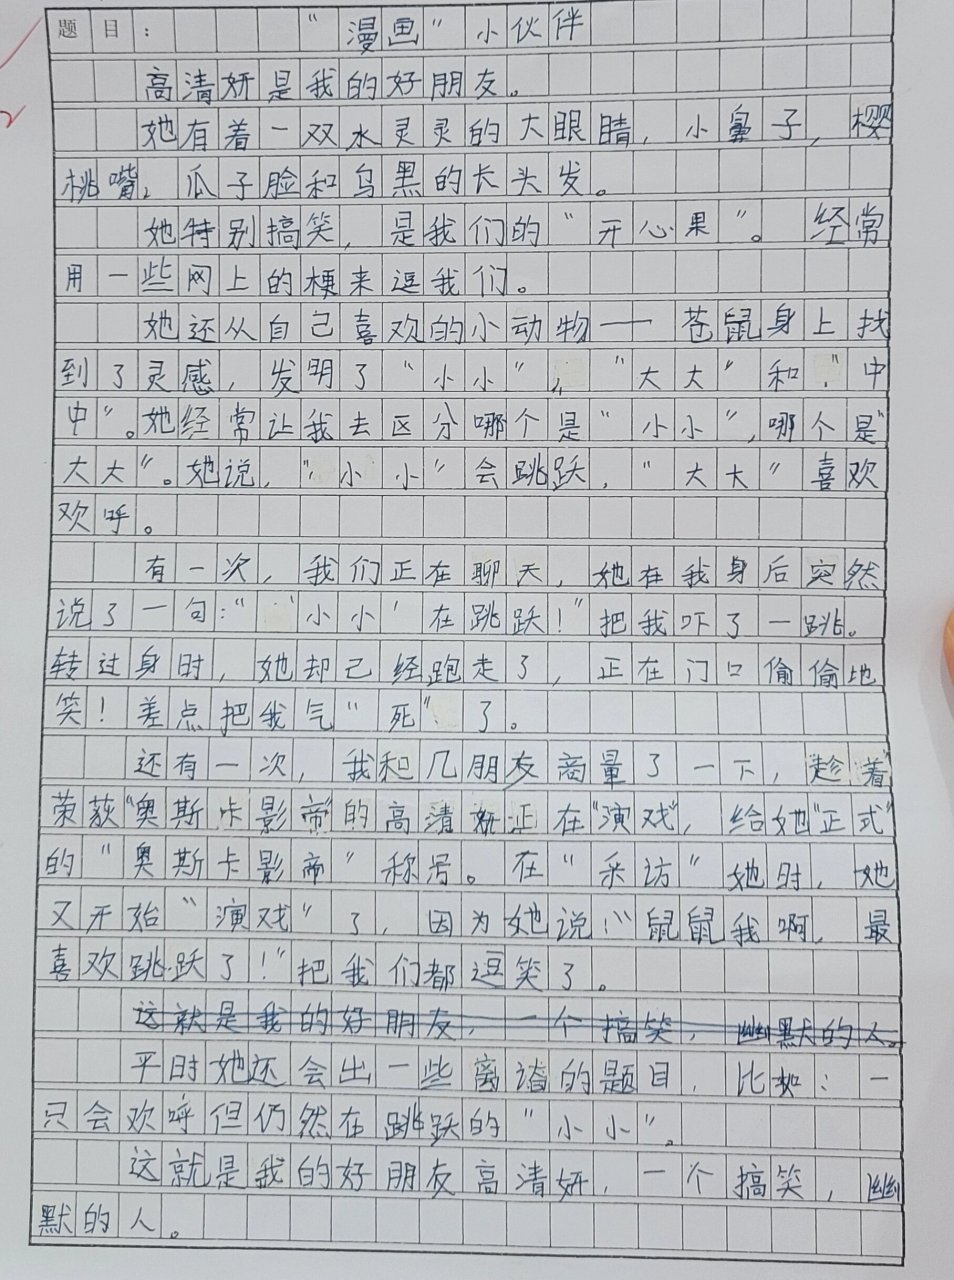 题目："漫画"小伙伴
高清妍是我的好朋友。
她有着一双水灵灵的大眼睛，小鼻子，樱
桃嘴，瓜子脸和乌黑的长头发。
她特别搞笑，是我们的"开心果"。经常
用一些网上的梗来逗我们。
她还从自己喜欢的小动物——苍鼠身上找
到了灵感，发明了"小小"，"大大"和"中
中"。她经常让我去区分哪个是"小小"，哪个是"
大大"。她说，"小小"会跳跃，"大大"喜欢
欢呼。
有一次，我们正在聊天，她在我身后突然
说了一句："'小小'在跳跃！"把我吓了一跳。
转过身时，她却已经跑走了，正在门口偷偷地
笑！差点把我气"死"了。
还有一次，我和几朋友商量了一下，趁着
荣获"奥斯卡影帝"的高清妍正在"演戏"，给她"正式"
的"奥斯卡影帝"称号。在"采访"她时，她
又开始"演戏"了，因为她说："鼠鼠我啊，最
喜欢跳跃了！"把我们都逗笑了。
这就是我的好朋友，一个搞笑，幽默的人。
平时她还会出一些离谱的题目，比如：一
只会欢呼但仍然在跳跃的"小小"。
这就是我的好朋友高清妍，一个搞笑，幽
默的人。